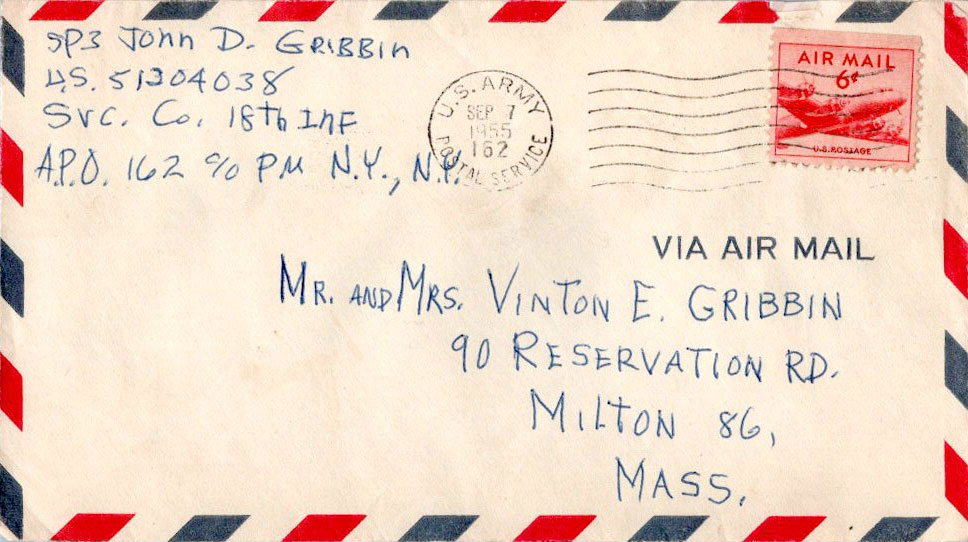 SP3 John D. Gribbin
U.S. 51304038
Svc. Co. 18th Inf
A.P.O. 162 c/o PM N.Y., N.Y.
U.S. ARMY
SEP 7
1955
162
POSTAL SERVICE
AIR MAIL
6¢
U.S. POSTAGE
VIA AIR MAIL
Mr. and Mrs. Vinton E. Gribbin
90 Reservation Rd.
Milton 86,
Mass.